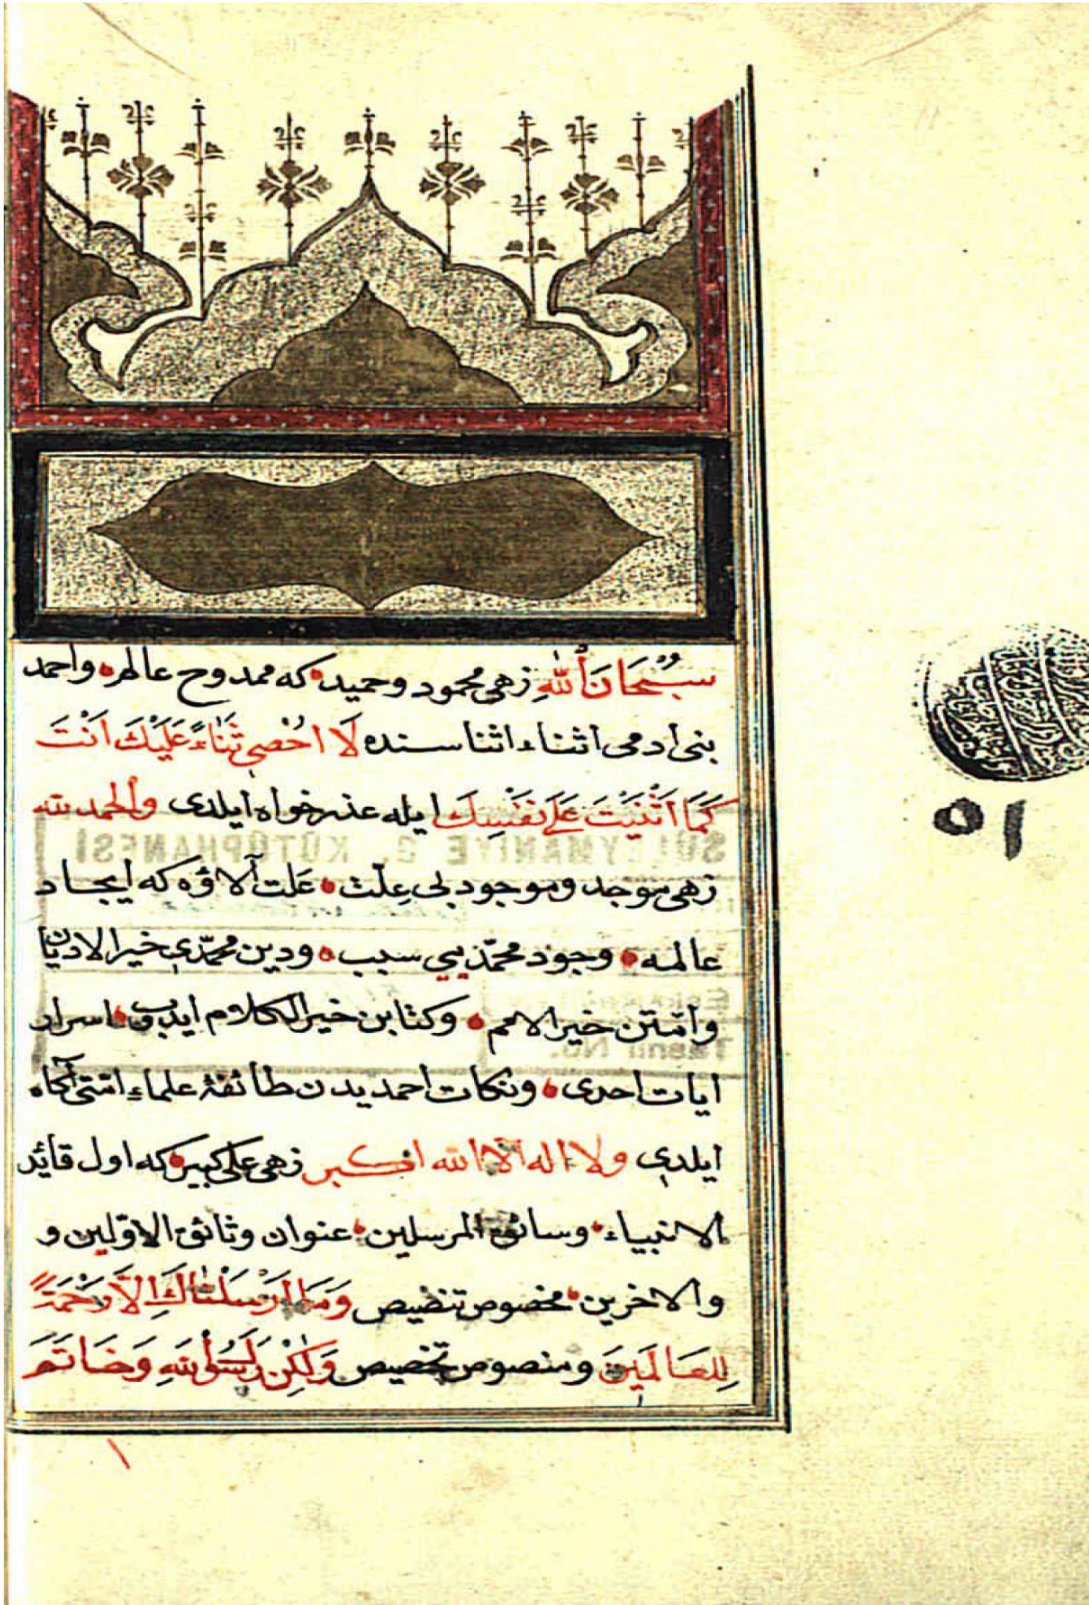 سُبْحَانَ اللهِ زهی محمود وحمید که ممدوح عالم واحمد
بنی ادمی اثناء اثنا سنده لَا اُحْصِی ثَنَاءً عَلَيْكَ اَنْتَ
كَمَا اَثْنَيْتَ عَلَى نَفْسِكَ ایله عذر خواه ایلدی والحمد لله
زهی موجد وموجود بی علّت علت آلاؤه که ایجاد
عالمه وجود محمّد یی سبب ودین محمّدی خیر الادیان
وامّتن خیر الامم وکتابن خیر الکلام ایدوب اسرار
ایات احدی ونکات احمدیدن طائفهٔ علماء امّتی آکاه
ایلدی ولا اله الا الله اکبر زهی علی کبیر که اول قائد
الانبیاء وسائق المرسلین عنوان وثائق الاوّلین و
والاخرین مخصوص تنصیص وَمَا اَرْسَلْنَاكَ اِلَّا رَحْمَةً
لِلْعَالَمِينَ ومنصوص تخصیص وَلٰكِنْ رَسُولَ اللهِ وَخَاتَمَ
SÜLEYMANİYE G. KÜTÜPHANESİ
Tasnif No.
٥١
١